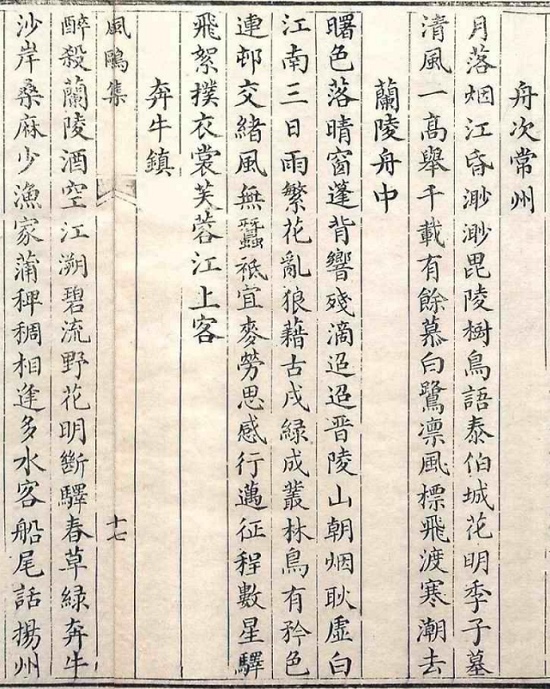 舟次常州
月落烟江昏渺渺毘陵樹鳥語泰伯城花明季子墓
清風一高舉千載有餘慕白鷺凛風標飛渡寒潮去
蘭陵舟中
曙色落晴窗蓬背響殘滴迢迢晋陵山朝烟耿虛白
江南三日雨繁花亂狼藉古戍緑成叢林鳥有矜色
連邨交緒風無蠶祗宜麥勞思感行邁征程數星驛
飛絮撲衣裳芙蓉江上客
奔牛鎮
風鷗集
十七
醉殺蘭陵酒空江溯碧流野花明斷驛春草緑奔牛
沙岸桑麻少漁家蒲稗稠相逢多水客船尾話揚州